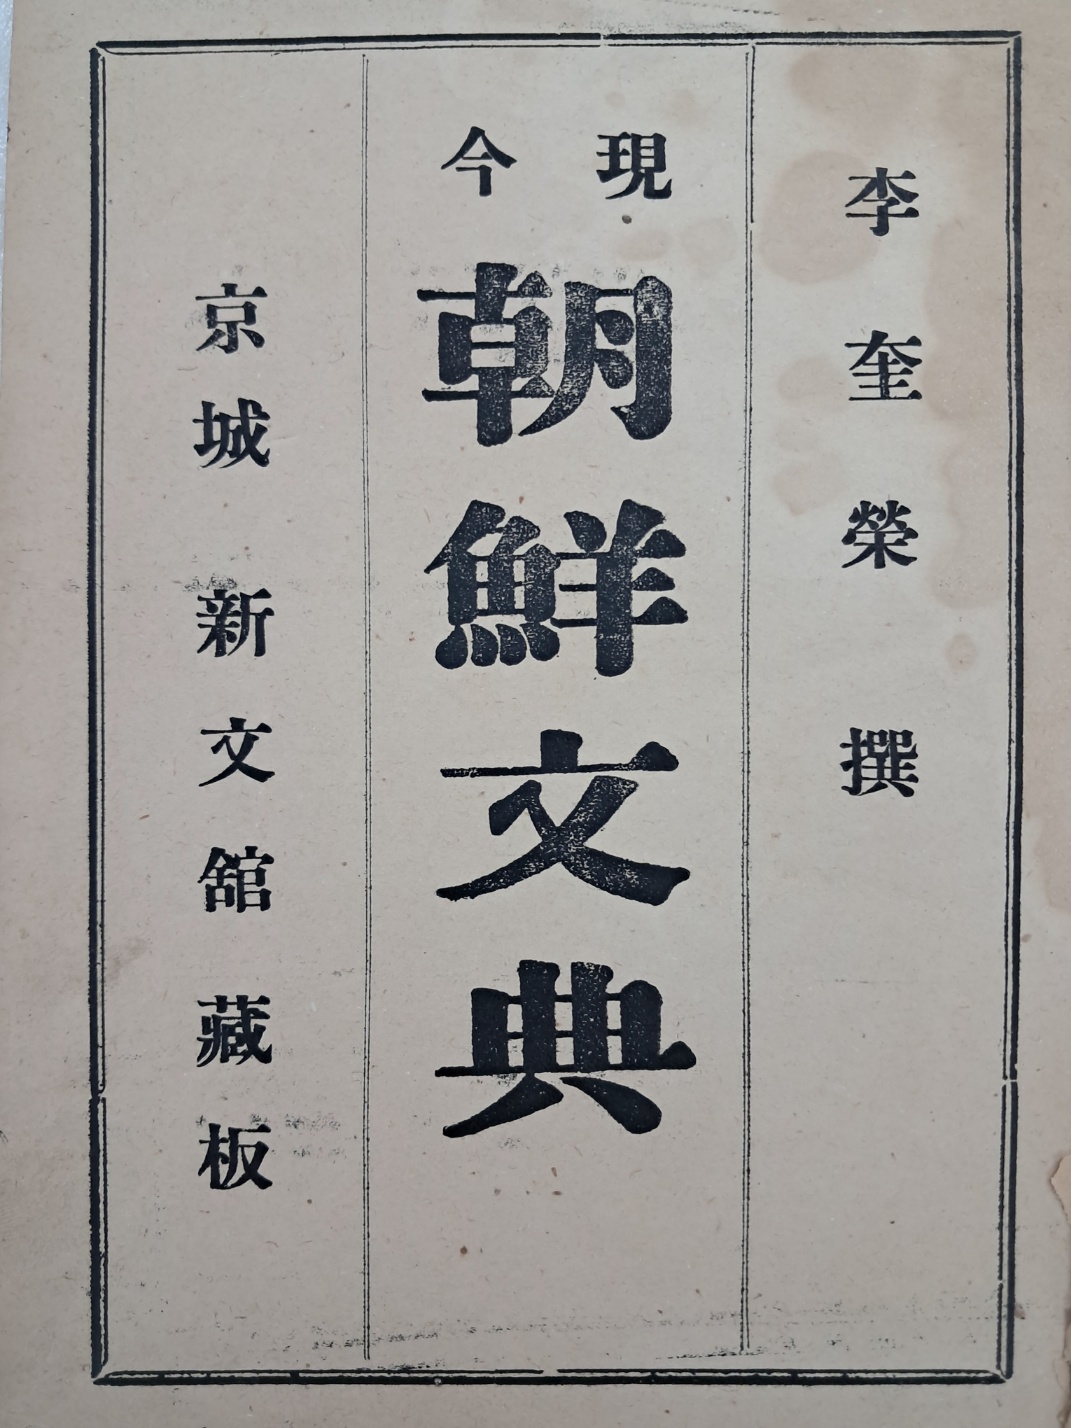 李奎榮撰
現今
朝鮮文典
京城 新文舘藏板